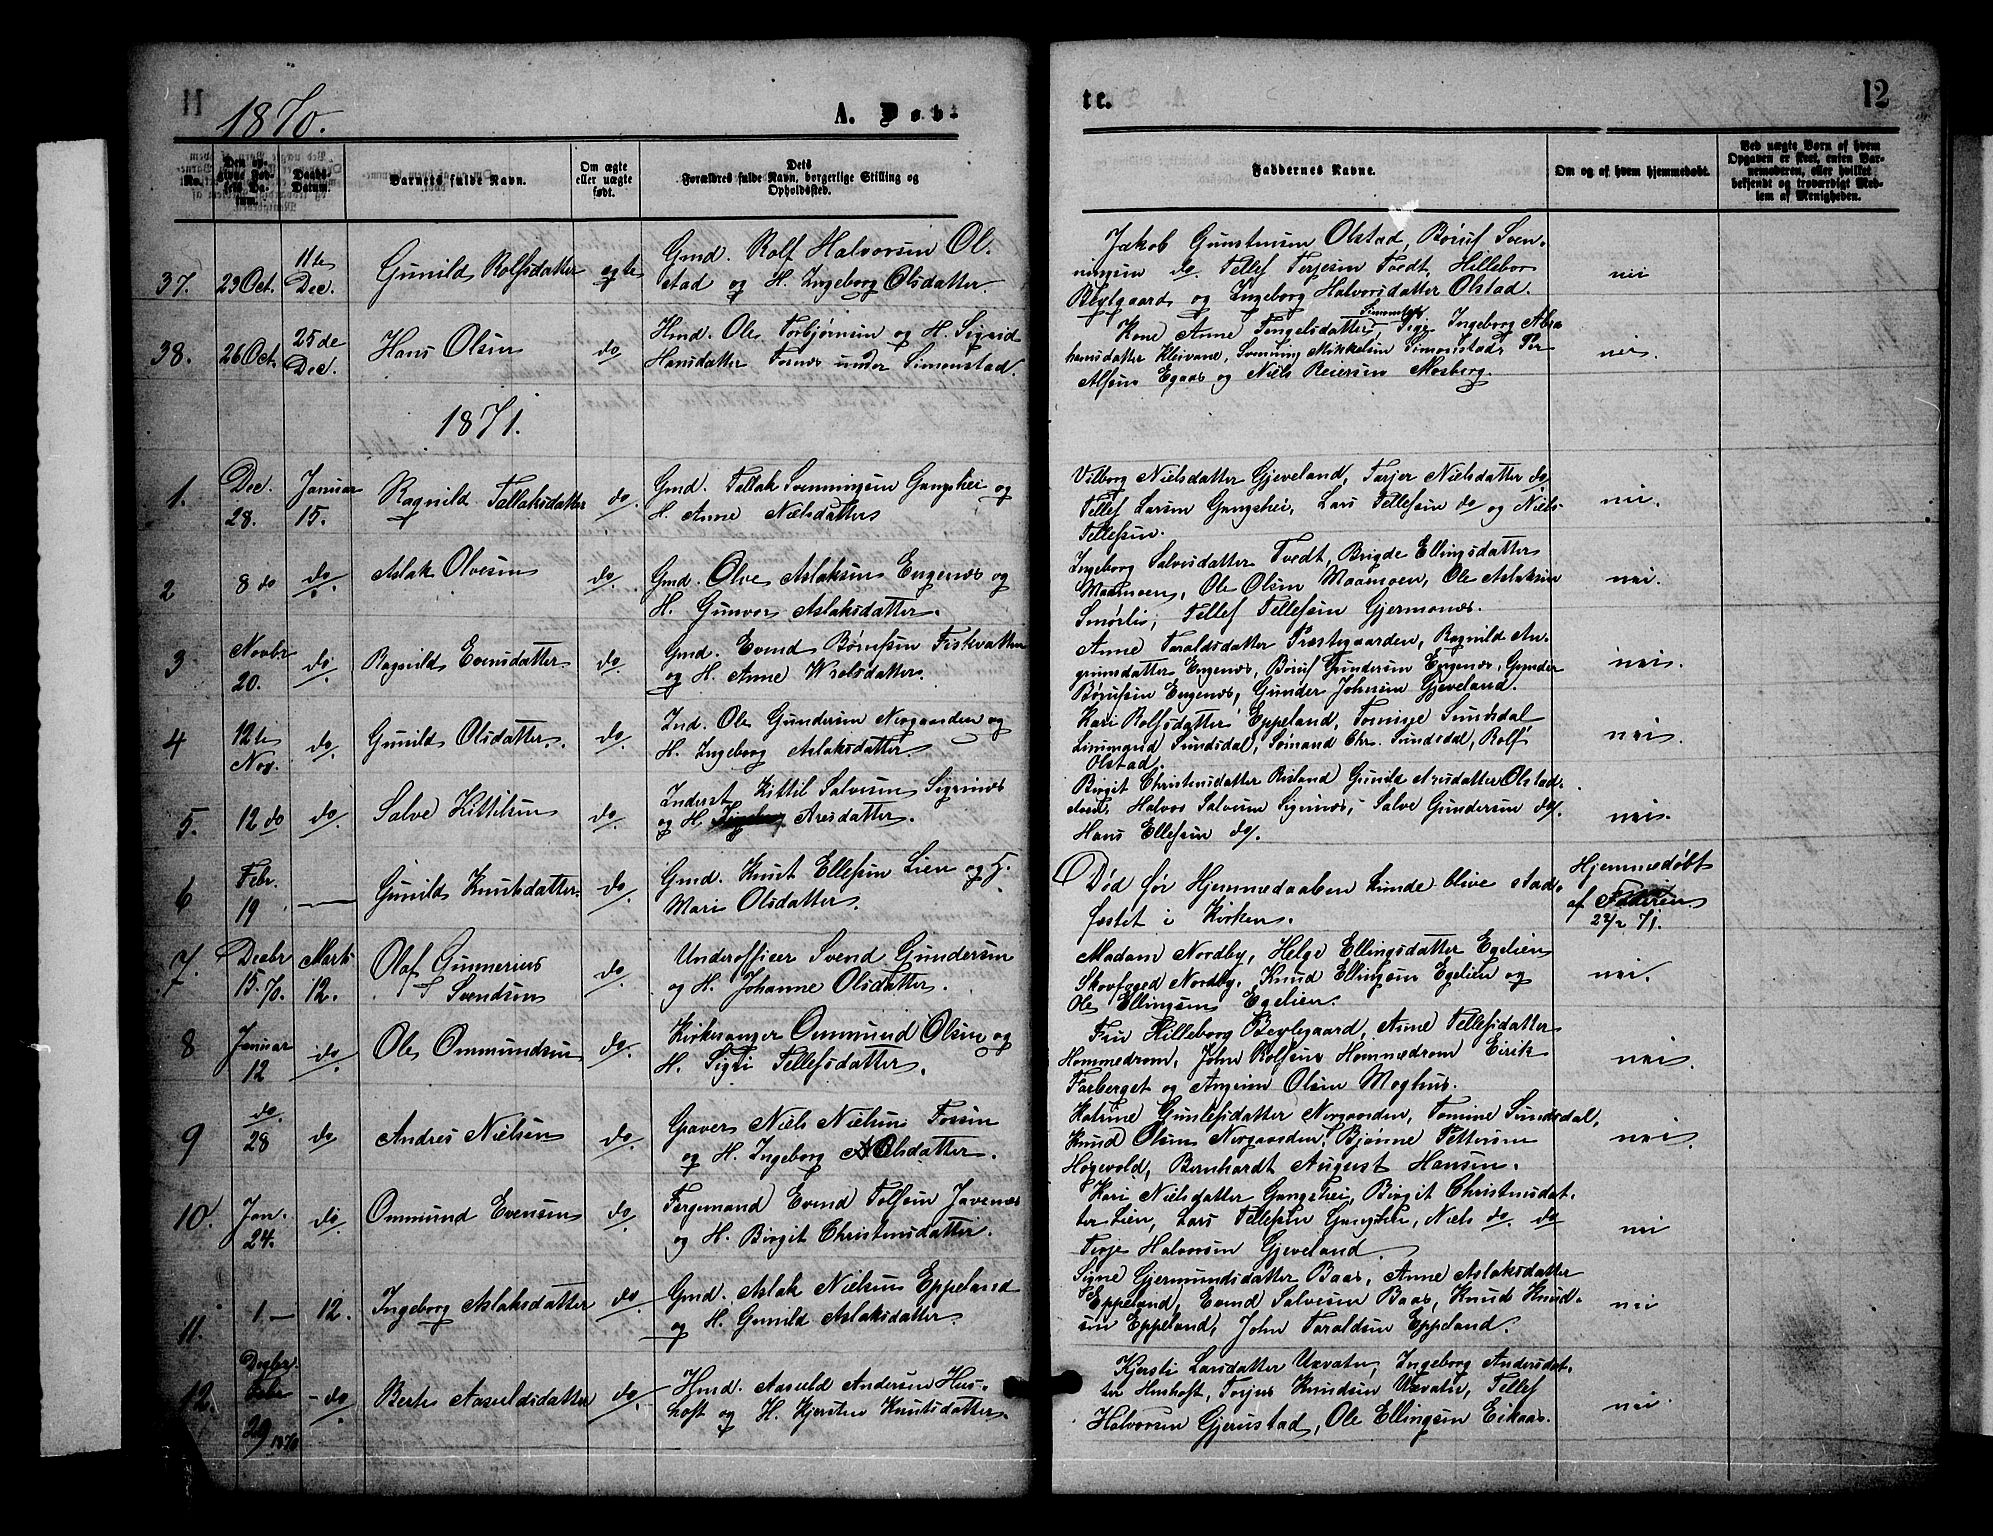 11
1870.
A. Døb-
te.
12
No.
Den op-
givne Fød-
sels Da-
tum.
Daabs-
Datum.
Barnets fulde Navn.
Om ægte
eller uægte
født.
Dets
Forældres fulde Navn, borgerlige Stilling og
Opholdssted.
Faddernes Navne.
Om og af hvem hjemmedøbt.
Ved uægte Børn af hvem
Opgaven er skeet, enten Bar-
nemoderen, eller hvilket
bekjendt og troværdigt Med-
lem af Menigheden.
37. 29 Oct. 11te Dec. Gunild Rolfsdatter ægte
Gmd. Rolf Halvorsen Ol-
stad og H. Ingeborg Olsdatter.
Jakob Gunstensen Olstad, Børuf Sven-
ningsen do. Tellef Terjesen Tvedt, Hilleborg
Beylgaard og Ingeborg Halvorsdatter Olstad.
nei
38. 26 Oct. 25de Dec. Hans Olsen do
Hmd. Ole Torbjørnsen og H. Sigrid
Hansdatter Fosnes under Simonstad.
Kone Anne Tengelsdatter Simonstad, Pige Ingeborg Abra
hamsdatter Kleivane, Svenning Mikkelsen Simonstad, Per
Alfsen Egaas og Niels Reiersen Mosberg.
nei.
1871.
1. Dec. 28. Januar 15. Ragnild Tallaksdatter do.
Gmd. Tallak Svenningsen Gangshei og
H. Anne Nielsdatter
Vilborg Nielsdatter Gjeveland, Tarjer Nielsdatter do,
Tellef Larsen Gangshei, Lars Tellefsen do og Niels
Tellefsen.
nei.
2 8 do do. Aslak Olvesen do.
Gmd. Olve Aslaksen Engenes og
H. Gunvor Aslaksdatter.
Ingeborg Salvesdatter Tvedt, Brigde Ellingsdatter
Maamoen, Ole Olsen Maamoen, Ole Aslaksen
Smørlie, Tellef Tellefsen Gjermones.
nei.
3 Novbr 20. do. Ragnild Evensdatter do
Gmd. Evend Børufsen Fiskvatten
og H. Anne Wrolsdatter.
Anne Taraldsdatter Præstegaarden, Ragnild An-
grimsdatter Engenes, Børuf Gundersen Engenes, Gunder
Børufsen Engenes, Gunder Johnsen Gjeveland.
nei.
4 12te Nov. do. Gunild Olsdatter. do.
Ind. Ole Gundersen Norgaarden og
H. Ingeborg Aslaksdatter
Kari Rolfsdatter Eppeland, Tomine Sundsdal
Sundsdal, Sømand Chr. Sundsdal, Rolf
Olstad.
nei.
5. 12 do do. Salve Kittilsen do.
Inderst Kittil Salvesen Sigenes
og H. Aresdatter.
Birgit Christensdatter Risland Gunild Aresdatter Olstad-
Halvor Salvesen Sigenes, Salve Gundersen do.
Hans Ellefsen do.
nei.
6 Febr. 19 — Gunild Knutsdatter. do.
Gmd. Knut Ellefsen Lien og H.
Mari Olsdatter.
Død før Hjemmedaaben kunde blive stad-
fæstet i Kirken.
Hjemmedøbt
af Faderen
22/2 71.
7 Decbr 15.70. Marts 12. Olaf Gunnerius Svendsen do.
Underofficer Svend Gundersen
og H. Johanne Olsdatter.
Madam Nordby, Helge Ellingsdatter Egelien
Skovfoged Nordby, Knud Ellingsen Egelien og
Ole Ellingsen Egelien.
nei.
8 Januar 12 do. Ole Ommundsen do.
Kirksanger Ommund Olsen og
H. Sigri Tellefsdatter.
Fru Hilleborg Beylegaard, Anne Tellefsdatter
Hommedrom, John Rolfsen Hommedrom Eirik
Farberget og Angrim Olsen Moghus.
nei.
9 do. 28 do Andres Nielsen do.
Graver Niels Nielsen Fossen
og H. Ingeborg Olsdatter.
Katrine Gunlefsdatter Norgaarden, Tomine Sundsdal,
Knud Olsen Norgaarden, Bjønne Pettersen
Høgevold, Bernhardt August Hansen.
nei.
10. Jan. 24. do Ommund Evensen do.
Fergemand Evend Tolfsen Javenes
og H. Birgit Christensdatter.
Kari Nielsdatter Gangshei, Birgit Christensdat-
ter Lien, Lars Tellefsen Gangshei, Niels do. do
Terje Halvorsen Gjeveland.
nei
11. 1 — 12. Ingeborg Aslaksdatter do.
Gmd. Aslak Nielsen Eppeland
og H. Gunild Aslaksdatter.
Signe Gjermundsdatter Baas, Anne Aslaksdatter
Eppeland, Evend Salvesen Baas, Knud Knud-
sen Eppeland, John Taraldsen Eppeland.
nei
12. Decbr 29 1870 - do Berte Aasuldsdatter do.
Hmd. Aasuld Andersen Hus-
hoft og H. Kjersten Knutsdatter.
Kjersti Larsdatter Uxvatn, Ingeborg Andersdat-
ter Hushoft, Torjus Knudsen Uxvatn, Tellef
Halvorsen Gjerustad, Ole Ellingsen Eikaas.
nei.